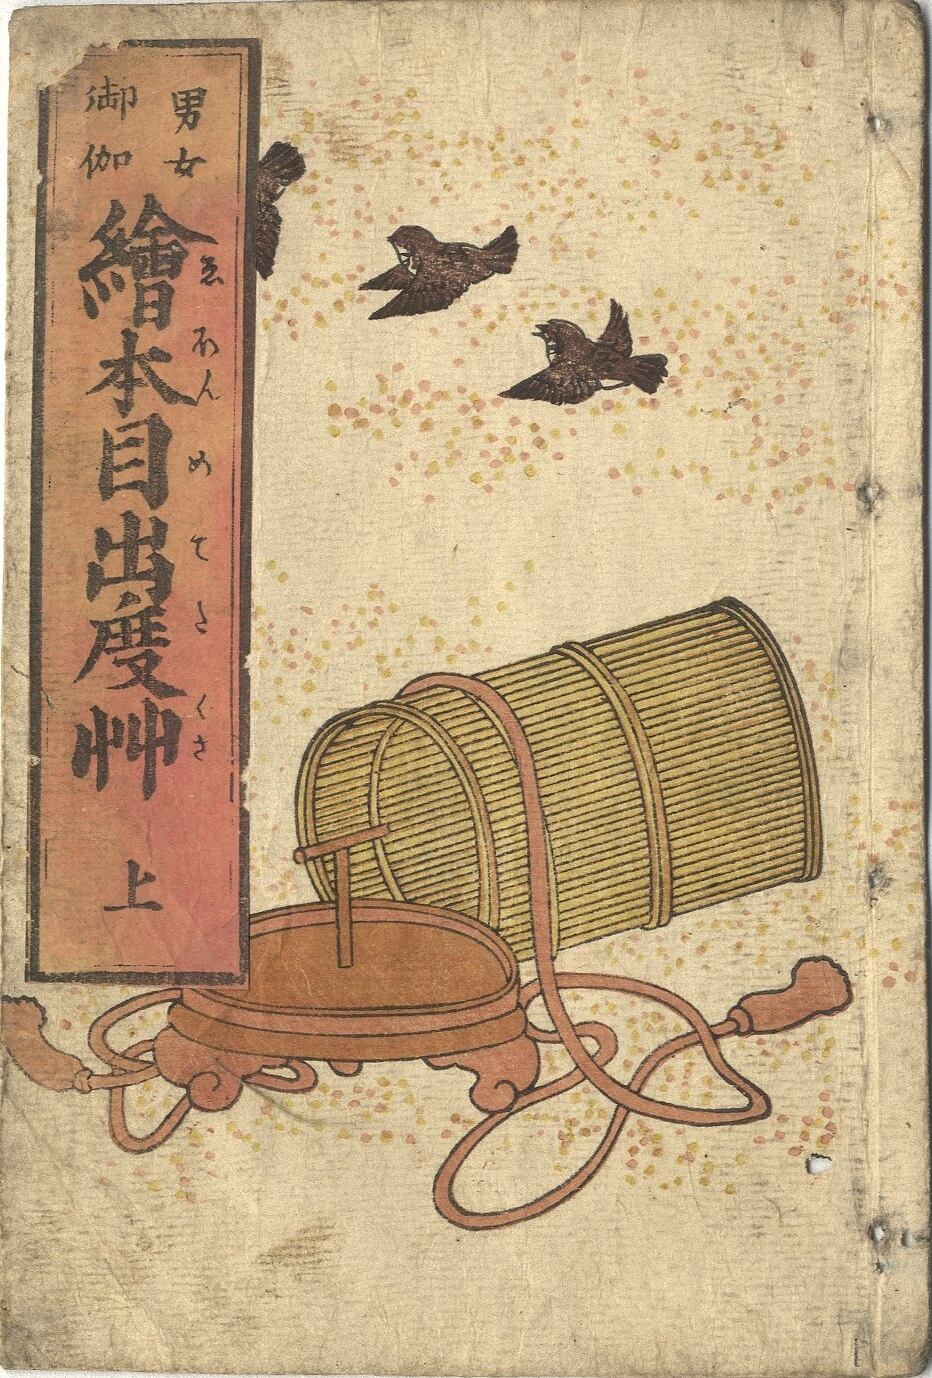 男女
御伽
繪本目出度艸
ゑほんめてたくさ
上